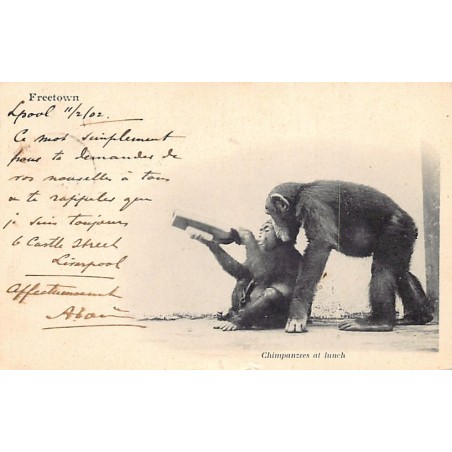 Freetown
Lpool 11/2/02.
Ce mot simplement
pour te demander de
vos nouvelles à tous
& te rappeler que
je suis toujours
6 Castle Street
Liverpool
Affectueusement
Chimpanzees at lunch